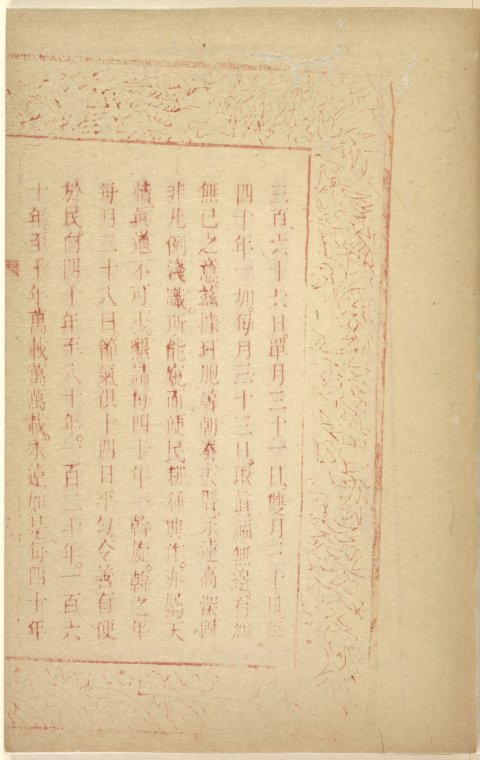 三百六十六日單月三十一日雙月三十日
四十年一加每月三十三日取眞福無邊有加
無已之意茲據玕胞等朝奏天曆永遠高深固
非凡例淺識所能窺而便民耕種興作亦屬天
情眞道不可少懇請每四十年一斡旋斡之年
每月二十八日節氣俱十四日平勻令善有便
於民自四十年至八十年一百二十年一百六
十年至千年萬載萬萬載永遠如是每四十年